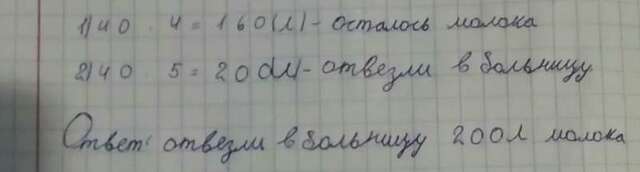 1) 40 · 4 = 160(л) - осталось молока
2) 40 · 5 = 200(л) - отвезли в больницу
Ответ: отвезли в больницу 200л молока